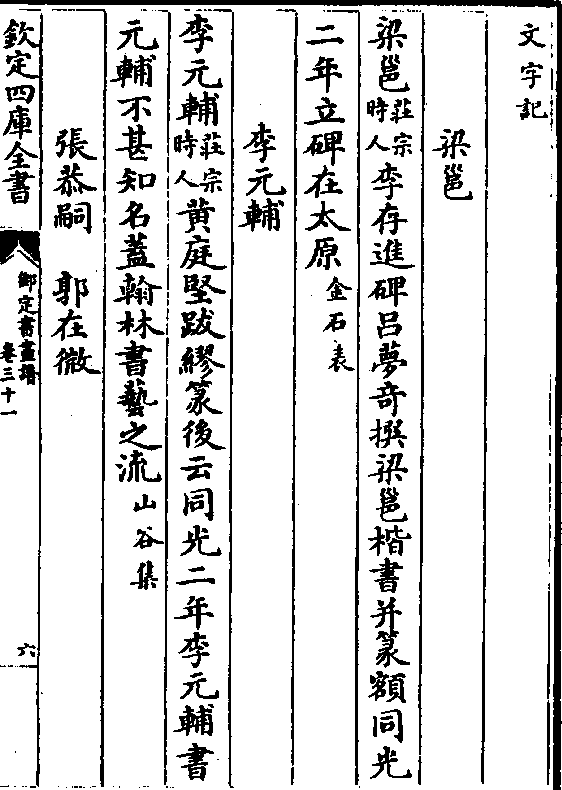 文字記
梁邕
梁邕莊宗時人李存進碑呂夢奇撰梁邕楷書并篆額同光
二年立碑在太原金石表
李元輔
李元輔莊宗時人黄庭堅跋繆篆後云同光二年李元輔書
元輔不甚知名蓋翰林書藝之流山谷集
張恭嗣　郭在徽
欽定四庫全書
御定書畫譜
卷三十一
六